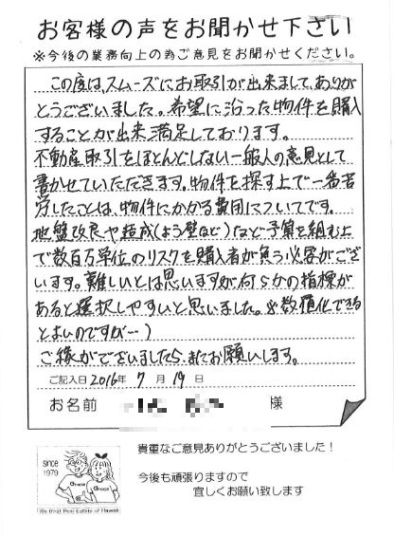 お客様の声をお聞かせ下さい
※今後の業務向上の為ご意見をお聞かせください。
この度はスムーズにお取引が出来まして、ありが
とうございました。希望に沿った物件を購入
することが出来満足しております。
不動産取引をほとんどしない一般人の意見として
書かせていただきます。物件を探す上で一番苦
労したことは、物件にかかる費用についてです。
地盤改良や造成(よう壁など)など予算を組む上
で数百万単位のリスクを購入者が負う必要がござ
います。難しいとは思いますが何らかの指標が
あると選択しやすいと思いました。(数値化できる
とよいのですが…)
ご縁がございましたら、またお願いします。
ご記入日 2016年 7月 19日
お名前 様
貴重なご意見ありがとうございました!
since
1979
今後も頑張りますので
宜しくお願い致します